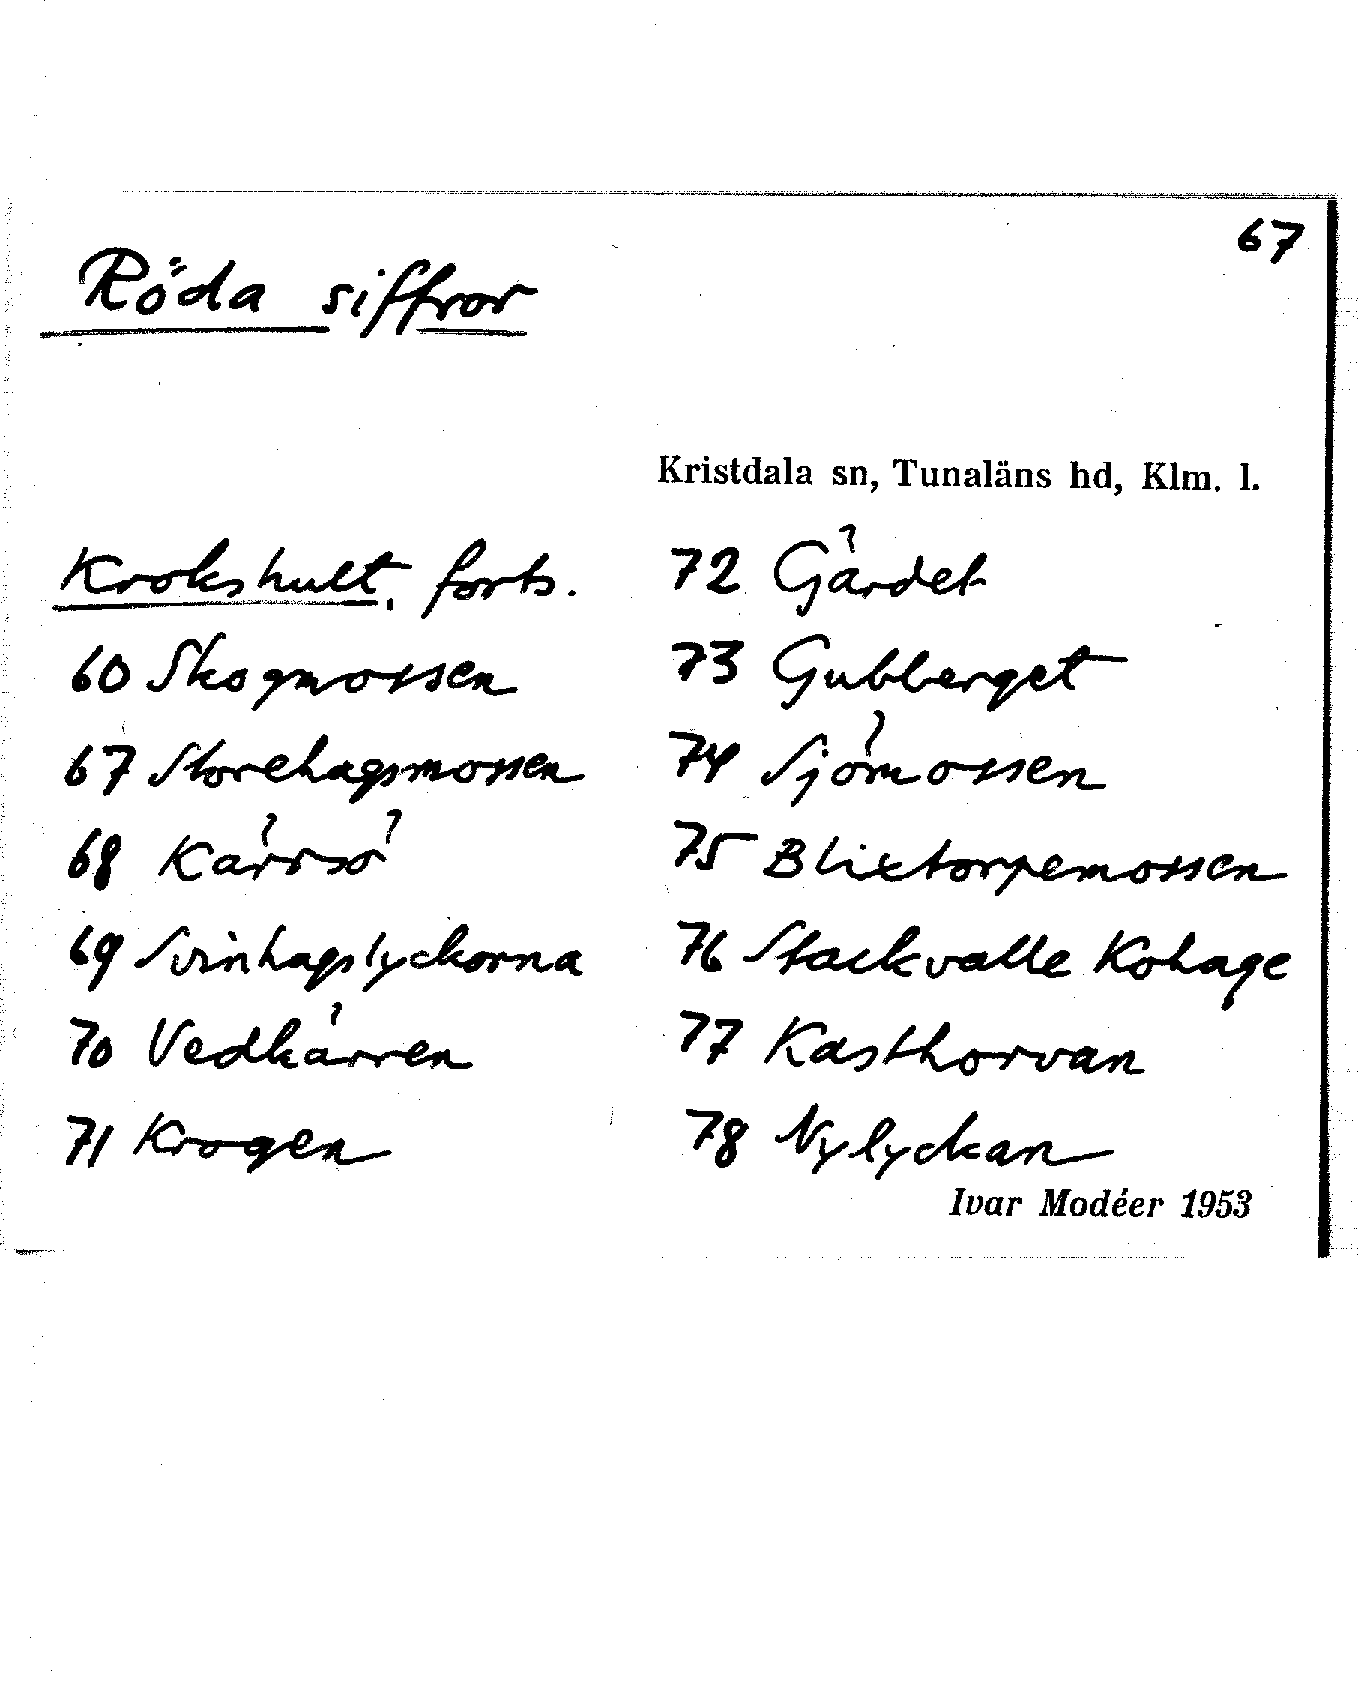 67
Röda siffror
Kristdala sn, Tunaläns hd, Klm. l.
Krokshult, forts.
60 Skogmossen
67 Storehagsmossen
68 Kärrsö
69 Svinhagslyckorna
70 Vedkärren
71 Krogen
72 Gärdet
73 Gubberget
74 Sjömossen
75 Blixtorpemossen
76 Stackvalle Kohage
77 Kasthorvan
78 Nylyckan
Ivar Modéer 1953